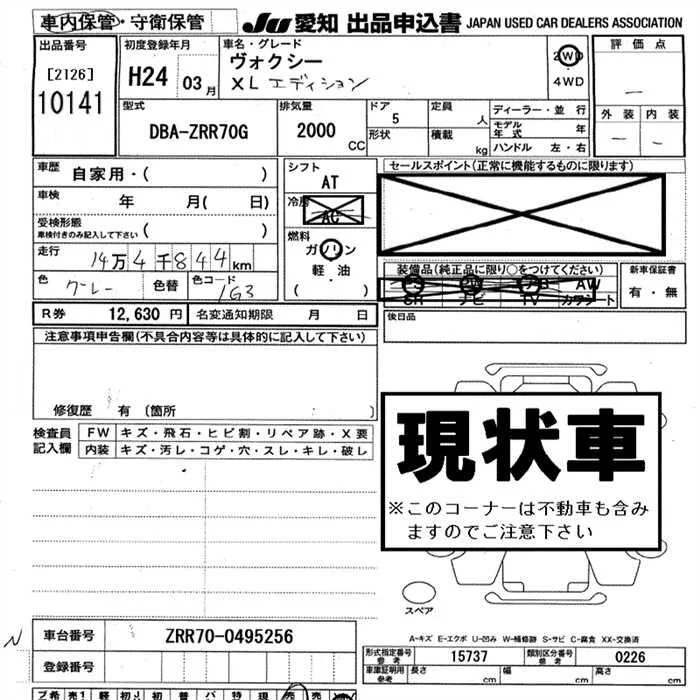 車内保管・守衛保管
JU 愛知 出品申込書 JAPAN USED CAR DEALERS ASSOCIATION
出品番号
[2126]
10141
初度登録年月
H24 03月
車名・グレード
ヴォクシー
XL エディション
2WD
4WD
評価点
外装 内装
型式
DBA-ZRR70G
排気量
2000 CC
ドア
5
形状
定員
人
積載
kg
ディーラー・並行
モデル年式 年
ハンドル 左・右
車歴 自家用・( )
車検 年 月( 日)
受検形態
車検付きのみ記入して下さい ( )
走行 14万4千844km
色 グレー 色替 色コード 1G3
シフト
AT
冷房
AC
燃料
ガソリン
軽・油
( )
セールスポイント(正常に機能するものに限ります)
装備品(純正品に限り○をつけてください)
SR ナビ TV カワシート
AW
新車保証書
有・無
R券 12,630円 名変通知期限 月 日
後日品
注意事項申告欄(不具合内容等は具体的に記入して下さい)
修復歴 有 〔箇所 〕
検査員記入欄
FW キズ・飛石・ヒビ割・リペア跡・X要
内装 キズ・汚レ・コゲ・穴・スレ・キレ・破レ
現状車
※このコーナーは不動車も含み
ますのでご注意下さい
スペア
A-キズ E-エクボ U-凹み W-補修跡 S-サビ C-腐食 XX-交換済
N
車台番号 ZRR70-0495256
登録番号
形式指定番号参考 15737 類別区分番号参考 0226
車庫証明用参考 長さ cm 幅 cm 高さ cm